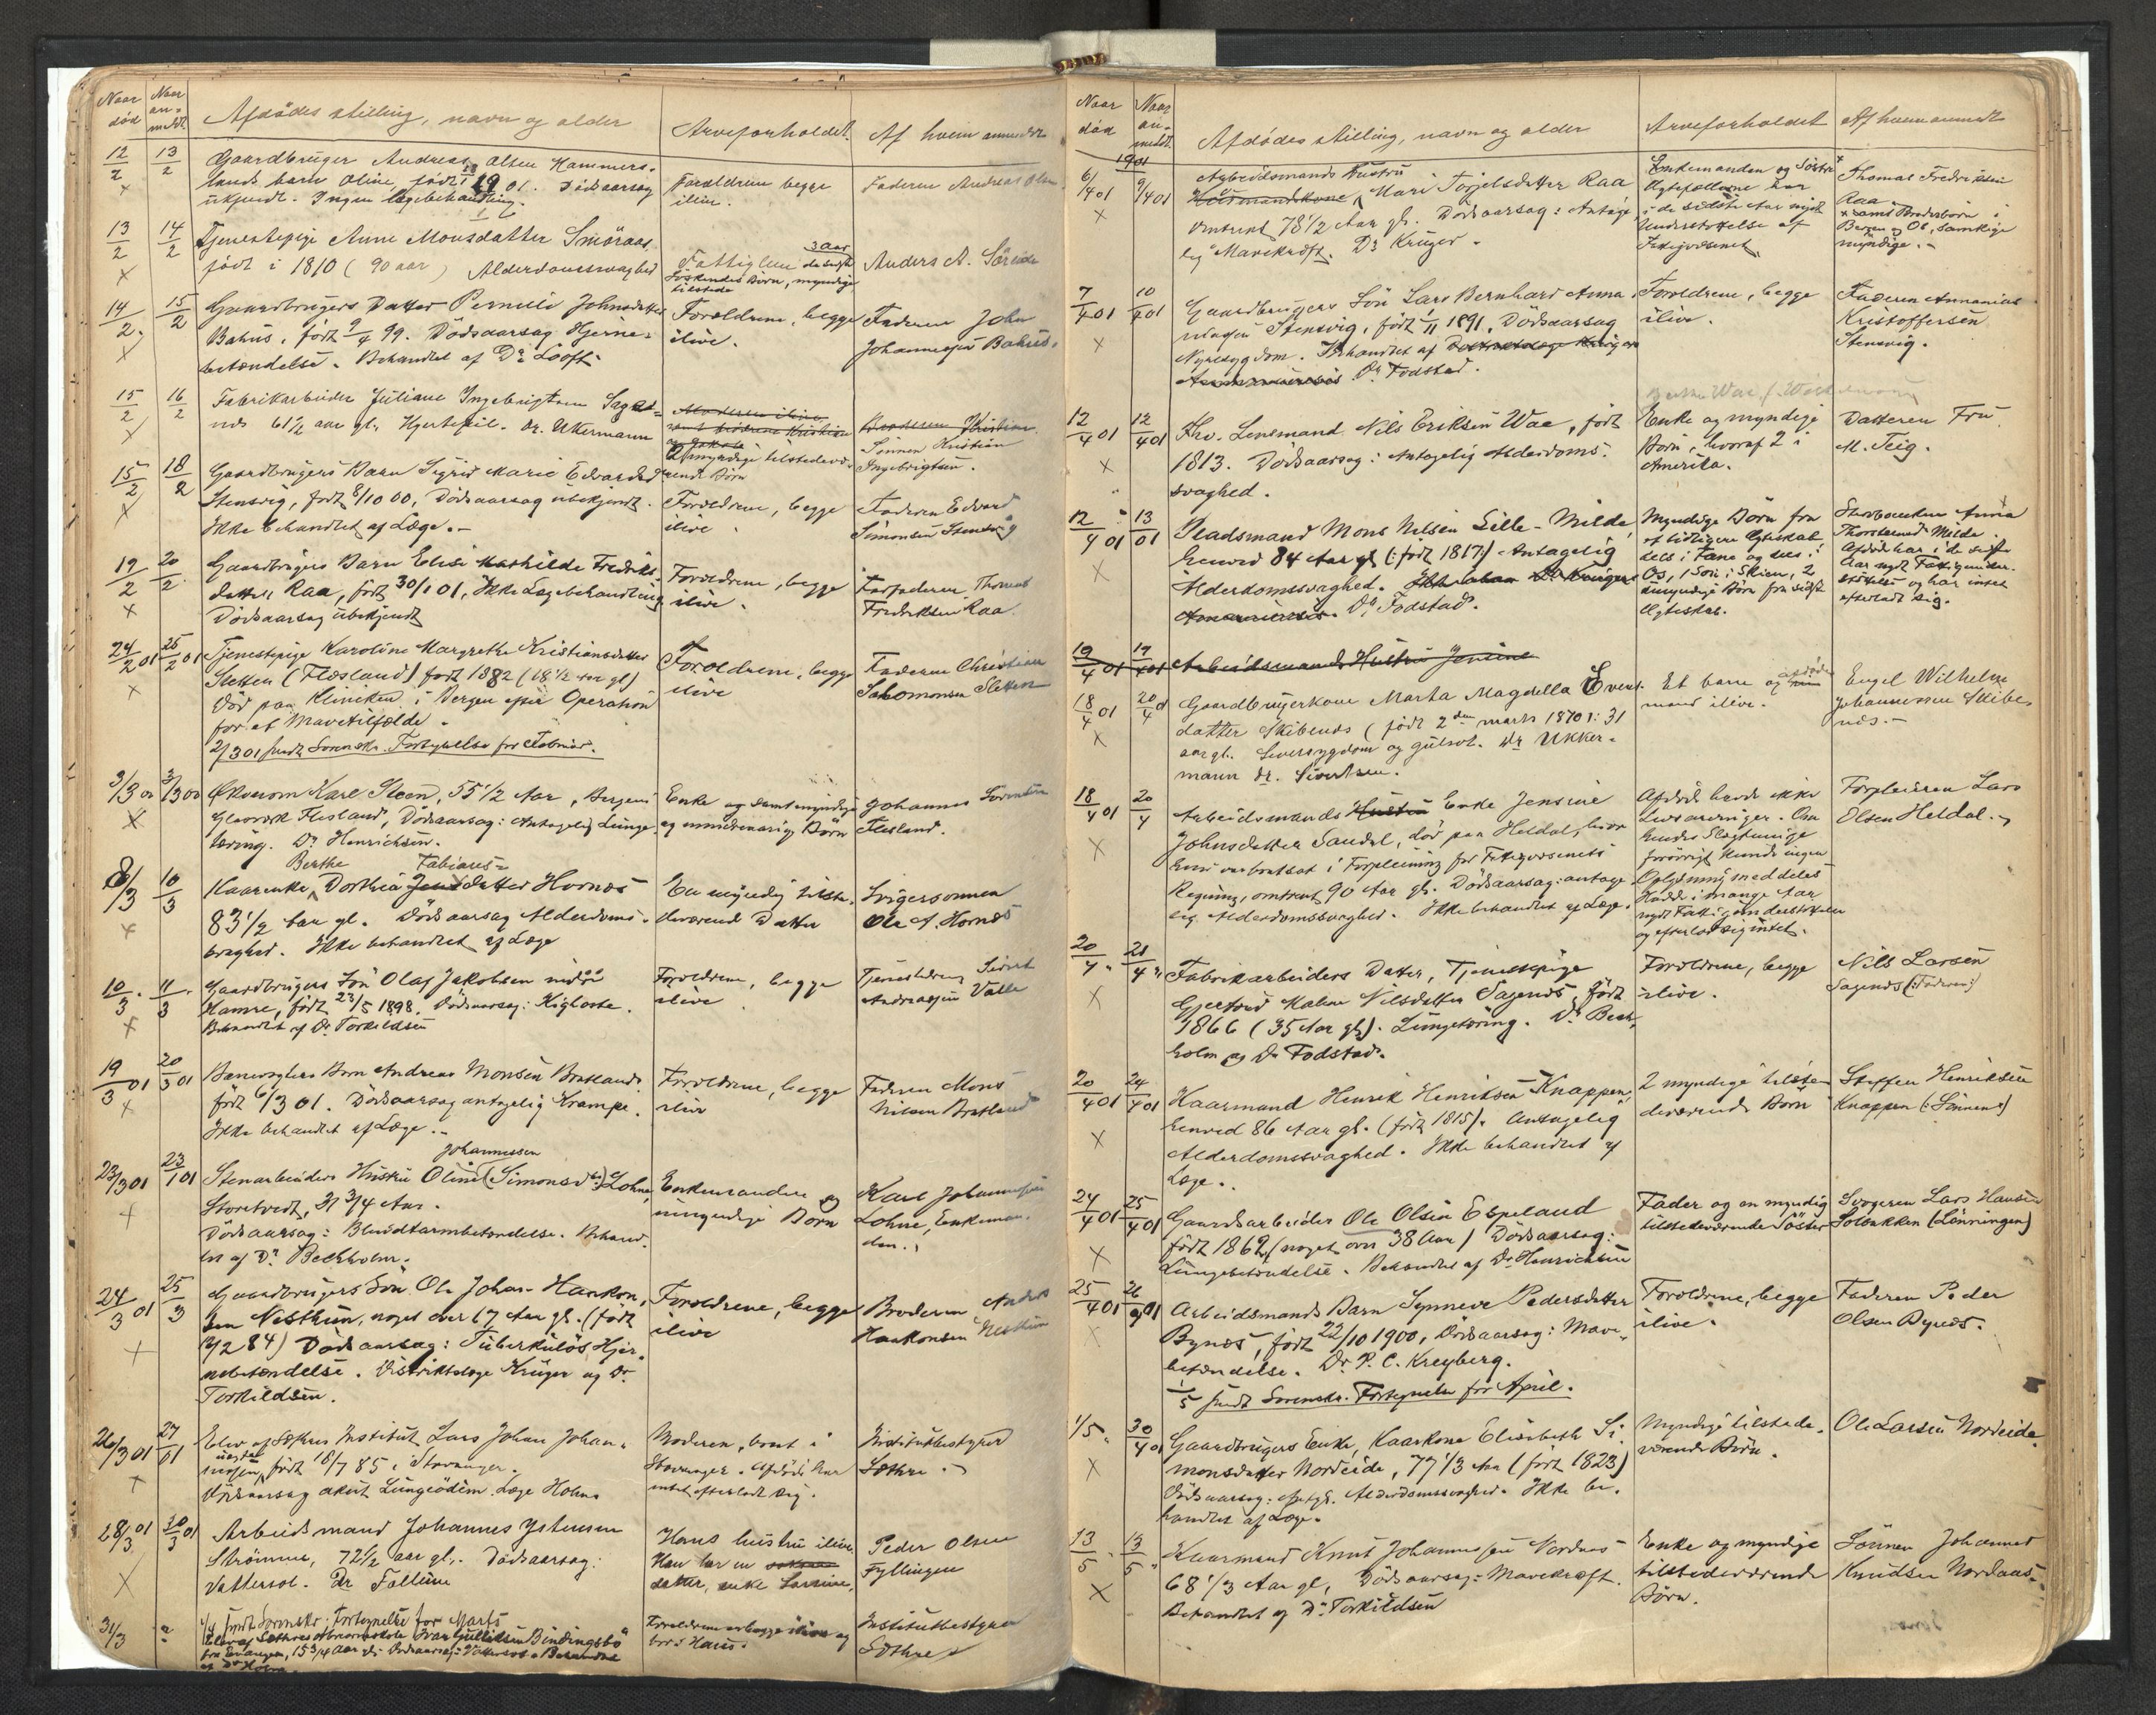 Naar død
Naar anmeldt.
Afdødes stilling, navn og alder
Arveforholdet.
Af hvem anmeldt
12/2
13/2
Gaardbruger Andreas Olsen Hammers-
lands barn Oline, født 1901. Dødsaarsag
ukjendt. Ingen lægebehandling.
Forældrene begge
ilive.
Faderen Andreas Olsen
13/2
14/2
Tjenestepige Anne Monsdatter Smöraas
født i 1810 (90 aar) Alderdomssvaghed
3 aar
Søskendes Børn, myndige
tilstede
Anders A. Söreide
14/2.
15/2
Gaardbrugers Datter Pernille Johnsdatter
Bahus, født 9/4 99. Dødsaarsag Hjerne-
betændelse. Behandlet af Dr Looft.
Forældrene, begge
ilive.
Faderen John
Johannessen Bahus.
15/2
16/2
Fabrikarbeider Juliane Ingebrigtsen
61 1/2 aar gl. Hjertefeil. Dr. Ukermann
Moderen ilive
samt brödrene Kristian
2 myndige tilstedevæ-
rende Børn
Broderen Kristian
Sönnen Kristian
Ingebrigtsen.
15/2
18/2
Gaardbrugers Barn Sigrid Marie Edvardsd
Stensvig, født 8/10 00, Dødsaarsag ubekjendt.
Ikke behandlet af Læge.-
Forældrene, begge
ilive
Faderen Edvard
Simonsen Stensvig
19/2
20/2.
Gaardbrugers Barn Elise Mathilde Fredriks-
datter Raa, født 30/1 01, Ikke Lægebehandling
Dødsaarsag ubekjendt
Forældrene, begge
ilive.
Farfaderen, Thomas
Fredriksen Raa.
24/2 01
25/2 01
Tjenestepige Karoline Margrethe Kristiansdatter
Sletten (Flæsland) født 1882 (18 1/2 aar gl)
Død paa Kliniken i Bergen efter Operation
for et Mavetilfælde.
2/3 01 sendt Sorenskr. Fortegnelse for Februar.
Forældrene, begge
ilive
Faderen Christian
Salomonsen Sletten
3/3 00
3/3 00
Økonom Karl Steen, 55 1/2 Aar, Bergens
Glasværk Flesland, Dødsaarsag: Antagelig Lunge-
tæring. Dr Henrichsen.
Enke og samt myndige
og umindreaarige Børn
Johannes Sörensen
Flesland.
8/3
10/3
Berthe Fabiares-
Kaarenke Dorthia Jensdatter Hornæs
83 1/2 Aar gl. Dødsaarsag Alderdoms-
svaghed. Ikke behandlet af Læge
En myndig tilste-
deværende Datter
Svigersonnen
Ole A. Hornæs
10/3.
11/3.
Gaardbrugers Søn Olaf Jakobsen nedre
Hamre, født 23/5 1898. Dødsaarsag: Kighoste.
Behandlet af Dr Torkildsen
Forældrene, begge
ilive
Tjenestedreng Sivert
Andreassen Valle
19/3 01
20/3 01
Banevogters Barn Andreas Monsen Bratland
født 6/3 01. Dødsaarsag antagelig Krampe.
Ikke behandlet af Læge.-
Forældrene, begge
ilive
Faderen Mons
Nilsen Bratland
23/3 01
23/ 01
Johannessen
Stenarbeiders Hustru Oline (Simonsdtr) Lohne
Storetvedt, 31 3/4 Aar.
Dødsaarsag: Blindtarmbetændelse. Behand-
let af Dr Bechholm.
Enkemanden og
umyndige Børn
Karl Johannessen
Lohne, Enkeman-
den.
24/3 01
25/3
Gaardbrugers Søn Ole Johan Haakon-
sen Nesttun, noget over 17 Aar gl. (født
/2 84) Dødsaarsag: Tuberkuløs Hjer-
nebetændelse. Distriktslæge Krüger og Dr
Torkildsen.
Forældrene, begge
ilive
Broderen Anders
Haakonsen Nesttun
26/3 01
27/ 01
Elev af Sothes Institut Lars Johan Johan-
nessen, født 18/7 85 i Stavanger.
Dødsaarsag akut Lungeødem. Læge Holm
Moderen, boet i
Stavanger. Afdøde har
intet efterladt sig.
Institutbestyrer
Sothre.
28/3 01
30/3 01
Arbeidsmand Johannes Ystensen
Strömme, 72 1/2 aar gl. Dødsaarsag:
Vattersot. Dr Falleine
Hans hustru ilive.
Han har en
datter, enke
Peder Olsen
Fyllingen
31/3
1/4 sendt Sorenskr. Fortegnelse for Marts
Elev af Sothres Ivar Gulliksen Bindingsbø
15 3/4 Aar gl. Dødsaarsag: Vattersot. Behandlet
Forældrene er begge ilive og
bor i Haus.
Institutbestyrer
Sothre
Naar død
Naar anmeldt.
Afdødes stilling, navn og alder
Arveforholdet
Af hvem anmeldt
1901
6/4 01
9/4 01
Arbeidsmands Hustru
Husmandskone Mari Torjelsdatter Raa
omtrent 78 1/2 Aar gl. Dødsaarsag: Antage-
lig Mavekræft. Dr Krüger.
Enkemanden og Søster
Ægtefællerne har
i de sidste Aar nydt
Understøttelse af
Fattigvæsenet.
Thomas Fredriksen
Raa
x samt Broderbörn i
Bergen og Os, samtlige
myndige.-
7/4 01
10/4 01
Gaardbrugers Søn Lars Bernhard Anna-
niasen Stensvig, født 1/11 1891. Dødsaarsag
Nyresygdom. Behandlet af Distriktslæge Krüger
Dr. Fodstad.
Forældrene, begge
ilive.
Faderen Annanias
Kristoffersen
Stensvig.
12/4 01
12/4 01
Fhv. Lensmand Nils Eriksen Waa, født
1813. Dødsaarsag: Antagelig Alderdoms-
svaghed.
Enke og myndige
Børn, hvoraf 2 i
Amerika.
Datteren Fru
M. Teig.
12/4 01
13/ 01
Pladsmand Mons Nilsen Lille-Milde,
henved 84 Aar gl (: født 1817:) Antagelig
Alderdomssvaghed. Dr Krüger
Dr. Fodstad.
Myndige Børn fra
et tidligere Ægteskab
dels i Fane og dels i
Os, 1 Søn i Skien, 2
umyndige Børn fra sidste
Ægteskab.
Anna
Thorstensd Milde.
Afdøde har i de sidste
Aar nydt Fattigunder-
støttelse og har intet
efterladt sig.
19/4 01
19/4 01
Arbeidsmands Hustru Jensine
18/4 01
20/4 01
Gaardbrugerkone Marta Magdella Evens-
datter Skibenes (født 2den marts 1870: 31
aar gl. Leversygdom og gulsot. Dr Ukker-
mann dr. Sivertsen.
Et barn og afdødes
mand ilive.
Engel Wilhelm
Johannessen Skibe-
næs.-
18/4 01
20/4
Arbeidsmands Hustru Enke Jensine
Johnsdatter Sandal, død paa Heldal, hvor
hun var bortsat i Forpleining for Fattigvæsenets
Regning, omtrent 90 Aar gl. Dødsaarsag: antage-
lig Alderdomssvaghed. Ikke behandlet af Læge.
Afdøde havde ikke
Livsarvinger. Om
hendes Slægtninge
forøvrigt kunde ingen
Oplysning meddeles
Havde i mange Aar
nydt Fattigunderstøttelse
og efterlod sig intet.
Forpleieren Lars
Olsen Heldal.
20/4 "
21/4 "
Fabrikarbeiders Datter, Tjenestepige
Gjertrud Malene Nilsdatter Sagenæs, født
1866 (35 Aar gl). Lungetæring. Dr Bech-
holm og Dr Fodstad.
Forældrene, begge
ilive.
Nils Larsen
Sagenæs (: Faderen:)
20/4 01
24/4 01
Kaarmand Henrik Henriksen Knappen,
henved 86 Aar gl. (født 1815). Antagelig
Alderdomssvaghed. Ikke behandlet af
Læge.
2 myndige tilste-
deværende Børn
Steffen Henriksen
Knappen (: Sønnen:)
24/4 01
25/4 01
Gaardsarbeider Ole Olsen Espeland
født 1862 (noget over 38 Aar) Dødsaarsag:
Lungebetændelse. Behandlet af Dr Henrichsen
Fader og en myndig
tilstedeværende Søster
Svogeren Lars Hansen
Solbakken (Lønningen)
25/4 01
26/4 01
Arbeidsmands Barn Synneve Pedersdatter
Bynæs, født 22/10 1900, Dødsaarsag: Mave-
betændelse. Dr P. C. Kreyberg.
1/5 sendt Sorenskr. Fortegnelse for April.
Forældrene, begge
ilive.
Faderen Peder
Olsen Bynæs.
1/5 "
30/4 01
Gaardbrugers Enke, Kaarkone Elisebeth Si-
monsdatter Nordeide, 77 1/3 Aar (født 1823)
Dødsaarsag: Antgl. Alderdomssvaghed. Ikke be-
handlet af Læge.
Myndige tilstede-
værende Børn.
Ole Larsen Nordeide
13/5 "
13/5 "
Kaarmand Knut Johannessen Nordnæs
68 1/3 Aar gl, Dødsaarsag: Mavekræft.
Behandlet af Dr Torkildsen
Enke og myndige
tilstedeværende
Børn.
Sönnen Johannes
Knudsen Nordaas.